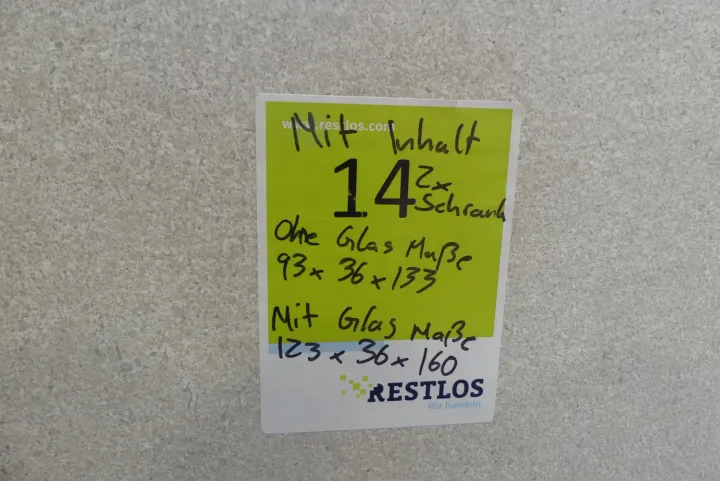 www.restlos.com
Mit Inhalt
14 2x
Schrank
Ohne Glas Maße
93 x 36 x 133
Mit Glas Maße
123 x 36 x 160
RESTLOS
Wir handeln.